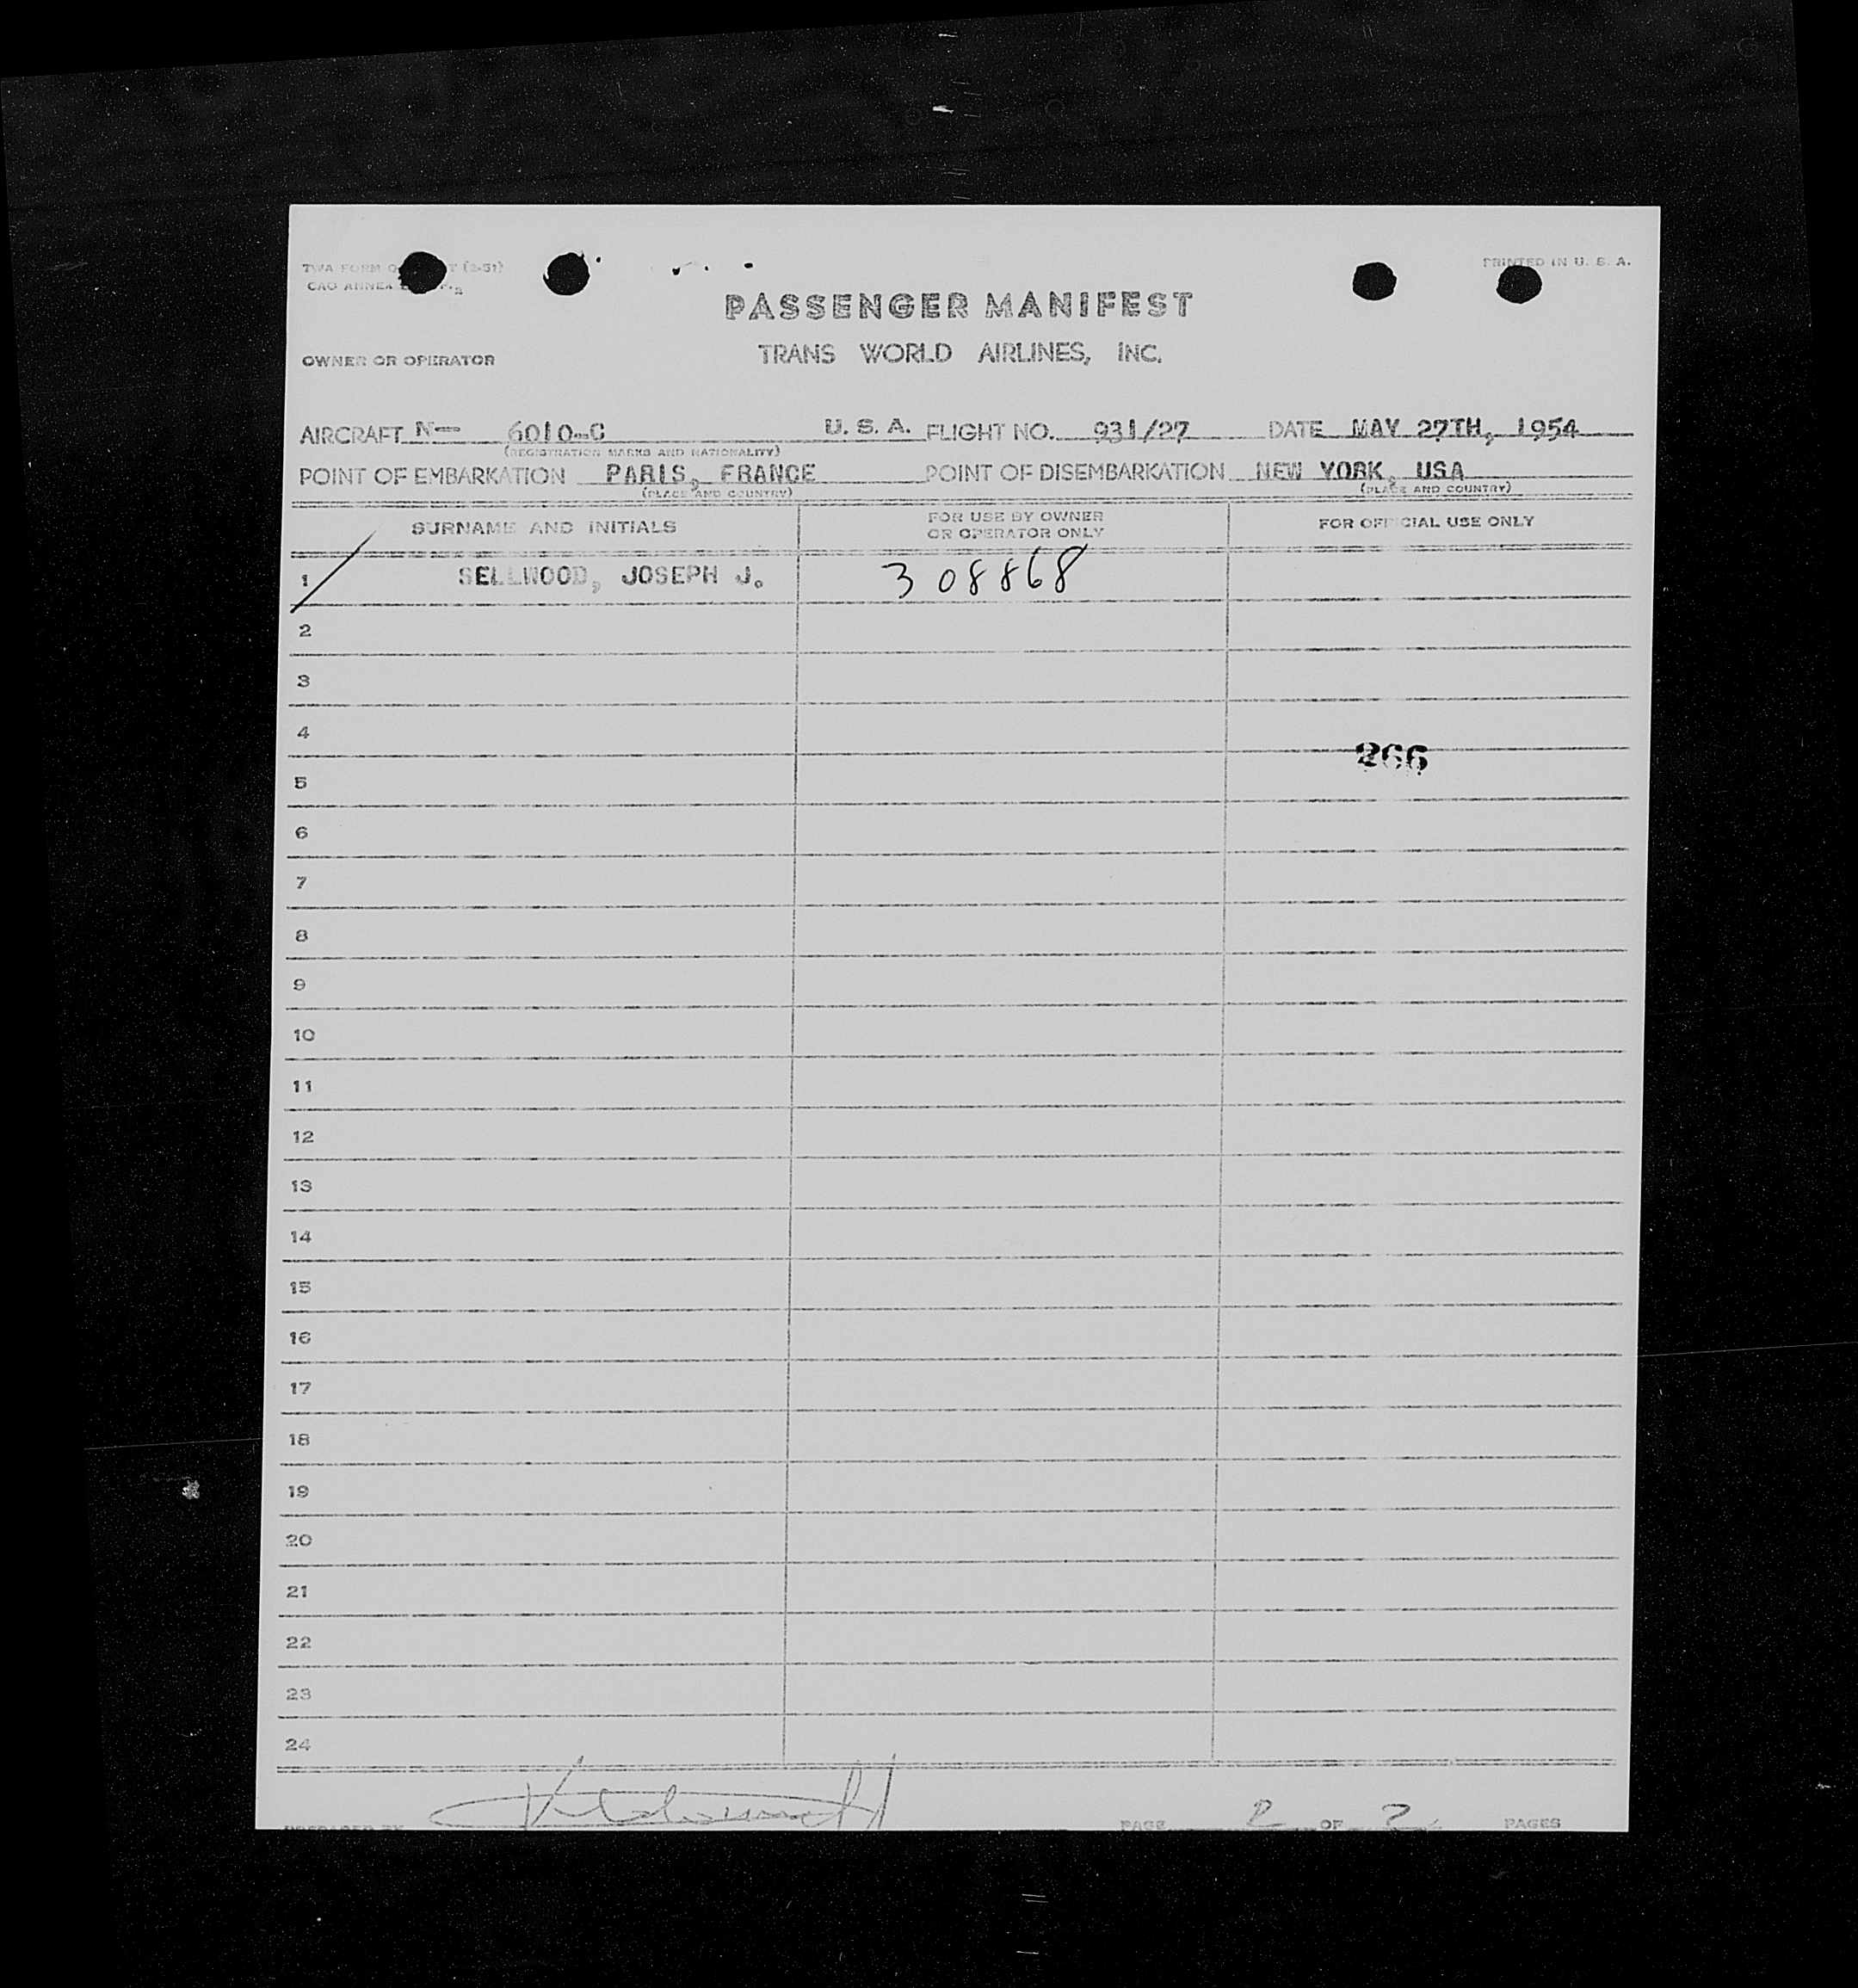 TWA FORM (2-51)
PRINTED IN U. S. A.
CAO ANNEX
PASSENGER MANIFEST
OWNER OR OPERATOR
TRANS WORLD AIRLINES, INC.
AIRCRAFT N- 6010-C U. S. A. FLIGHT NO. 931/27 DATE MAY 27TH, 1954
(REGISTRATION MARKS AND NATIONALITY)
POINT OF EMBARKATION PARIS, FRANCE POINT OF DISEMBARKATION NEW YORK, USA
(PLACE AND COUNTRY) (PLACE AND COUNTRY)
SURNAME AND INITIALS FOR USE BY OWNER OR OPERATOR ONLY FOR OFFICIAL USE ONLY
1 SELLWOOD, JOSEPH J. 308868
2
3
4
266
5
6
7
8
9
10
11
12
13
14
15
16
17
18
19
20
21
22
23
24
PREPARED BY PAGE 2 OF 2 PAGES